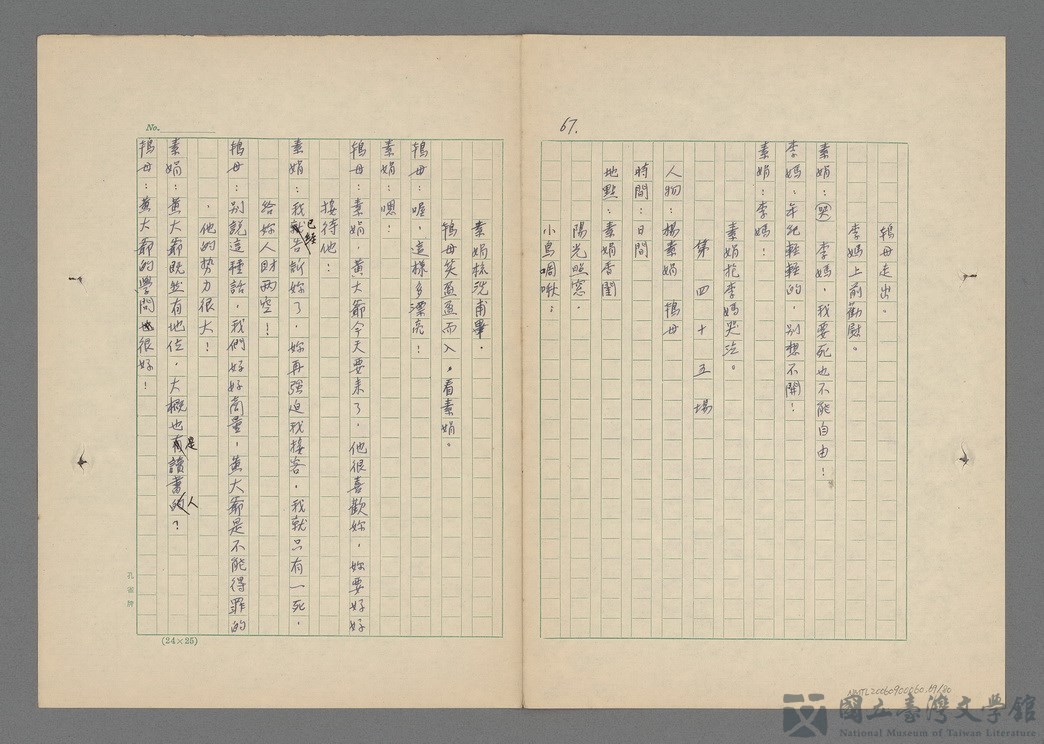 67.
鴇母走出。
李媽上前勸慰。
素娟：（哭）李媽，我要死也不能自由！
李媽：年紀輕輕的，別想不開！
素娟：李媽：
素娟抱李媽哭泣。
第四十五場
人物：楊素娟 鴇母
時間：日間
地點：素娟香閨
陽光照窓。
小鳥啁啾：
素娟梳洗甫畢，
鴇母笑盈盈而入，看素娟。
鴇母：喔，這樣多漂亮！
素娟：嗯：
鴇母：素娟，黃大爺今天要来了，他很喜歡妳，妳要好好
接待他：
素娟：我已經告訴妳了，妳再强迫我接客，我就只有一死，
給妳人財兩空！
鴇母：別說這種話，我們好好商量，黃大爺是不能得罪的
，他的势力很大！
素娟：黃大爺既然有地位，大概也是讀書人？
鴇母：黃大爺的學問也很好！
No.
(24×25)
孔雀牌
NMTL20060900060.69/80
國立臺灣文學館
National Museum of Taiwan Literature